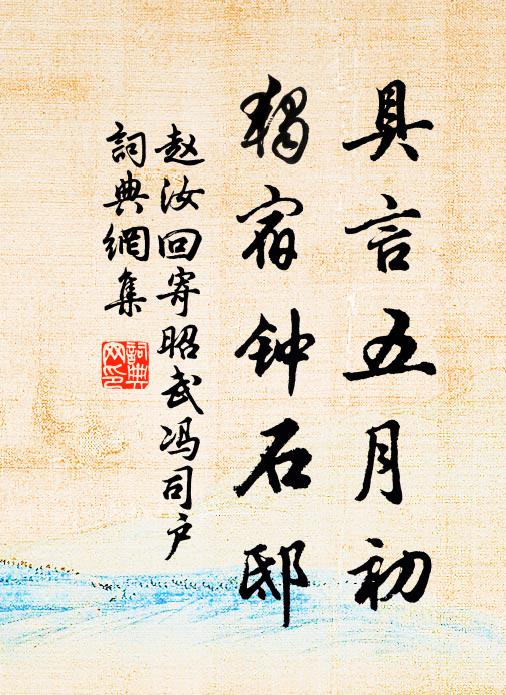 具言五月初
獨宿钟石邸
赵汝回寄昭武冯司户
詞典網集
詞典网印